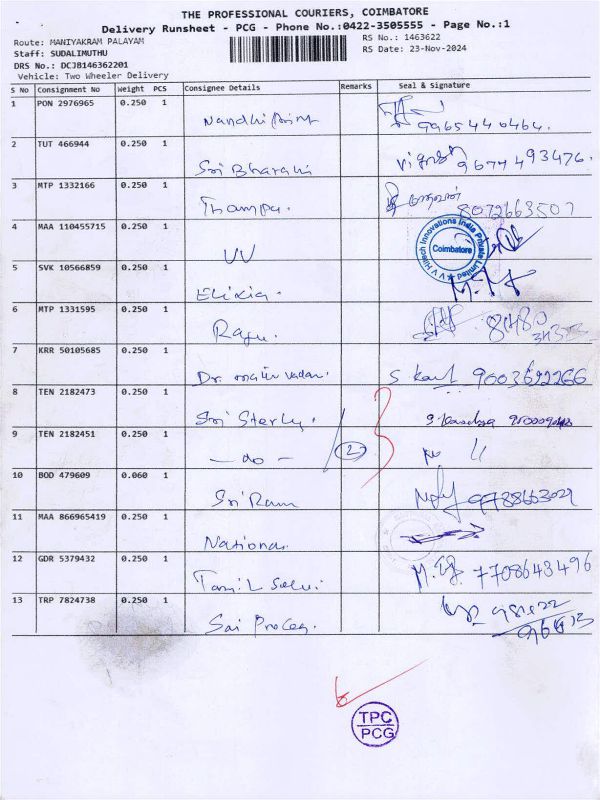 THE PROFESSIONAL COURIERS, COIMBATORE
Delivery Runsheet - PCG - Phone No.:0422-3505555 - Page No.:1
Route: MANIYAKRAM PALAYAM
RS No.: 1463622
Staff: SUDALIMUTHU
RS Date: 23-Nov-2024
DRS No.: DCJB146362201
Vehicle: Two Wheeler Delivery
S No Consignment No Weight PCS Consignee Details Remarks Seal & Signature
1 PON 2976965 0.250 1 Nandhi 9965440464.
2 TUT 466944 0.250 1 Sri Bharani 9677493476.
3 MTP 1332166 0.250 1 Thampu. 8072663507
4 MAA 110455715 0.250 1 VV
V V Hitech Innovations India Private Limited
Coimbatore
5 SVK 10566859 0.250 1 Elixia.
6 MTP 1331595 0.250 1 Ragu.
7 KRR 50105685 0.250 1 Dr. 9003692266
8 TEN 2182473 0.250 1 Sri Sterly.
9 TEN 2182451 0.250 1 - do - 2 "
10 BOD 479609 0.060 1 Sri Ram
11 MAA 866965419 0.250 1 National
12 GDR 5379432 0.250 1 Tamil Selvi 7708643496
13 TRP 7824738 0.250 1 Sai
TPC
PCG